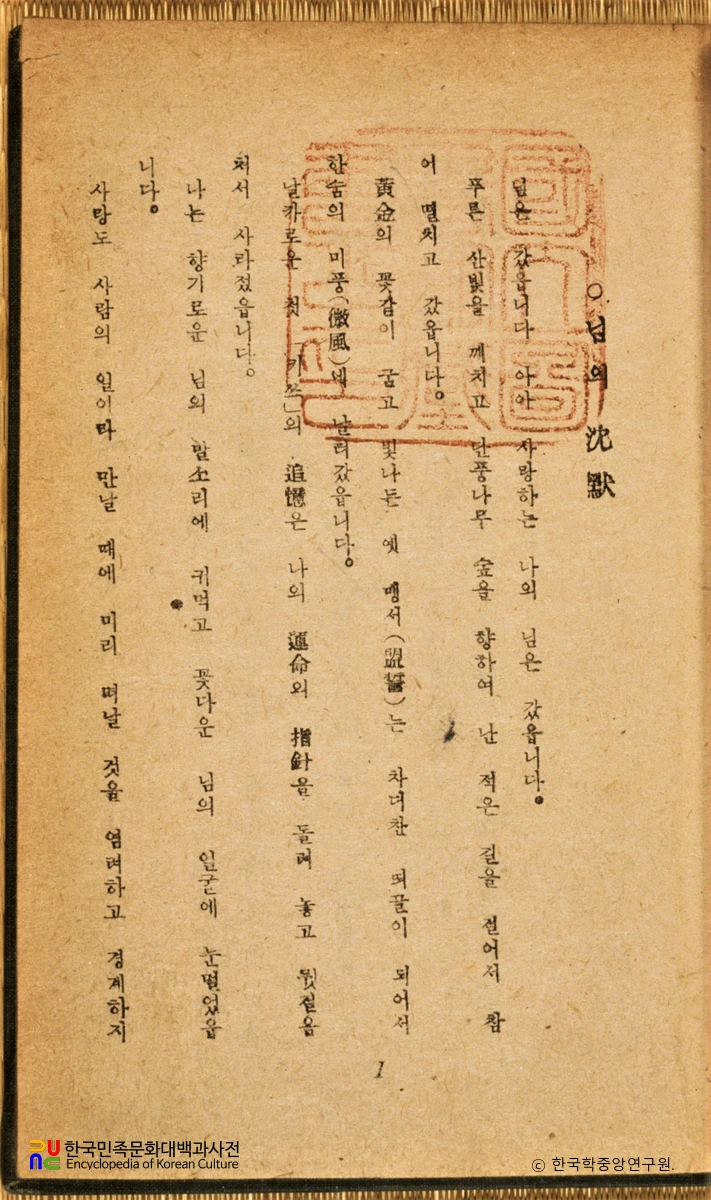 ○님의 沈默
님은 갔읍니다 아아 사랑하는 나의 님은 갔읍니다。
푸른 산빛을 깨치고 단풍나무 숲을 향하여 난 적은 길을 걸어서 참
어 떨치고 갔읍니다。
黃金의 꽃같이 굳고 빛나든 옛 맹서(盟誓)는 차디찬 띄끌이 되어서
한숨의 미풍(微風)에 날러갔읍니다。
날카로운 첫 「키쓰」의 追憶은 나의 運命의 指針을 돌려 놓고 뒷걸음
처서 사라졌읍니다。
나는 향기로운 님의 말소리에 귀먹고 꽃다운 님의 얼굴에 눈멀었읍
니다。
사랑도 사람의 일이라 만날 때에 미리 떠날 것을 염려하고 경계하지
1
한국민족문화대백과사전
Encyclopedia of Korean Culture
© 한국학중앙연구원.